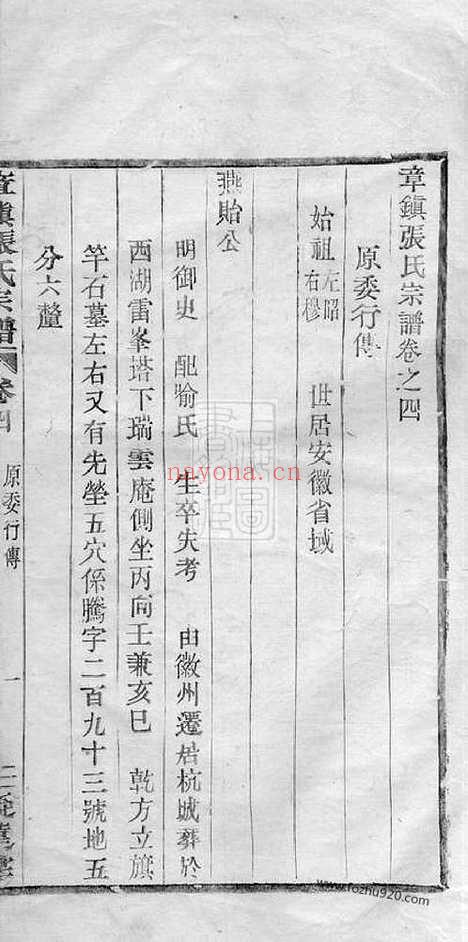 章鎮張氏宗譜卷之四
原委行傳
始祖 左昭右穆 世居安徽省城
燕貽公
明御史 配喻氏 生卒失考 由徽州遷居杭城葬於
西湖雷峯塔下瑞雲庵側坐丙向壬兼亥巳 乾方立旗
竿石墓左右又有先塋五穴係騰字二百九十三號地五
分六釐
章鎮張氏宗譜 卷四 原委行傳 一
nayona.cn
www.fozhu920.com